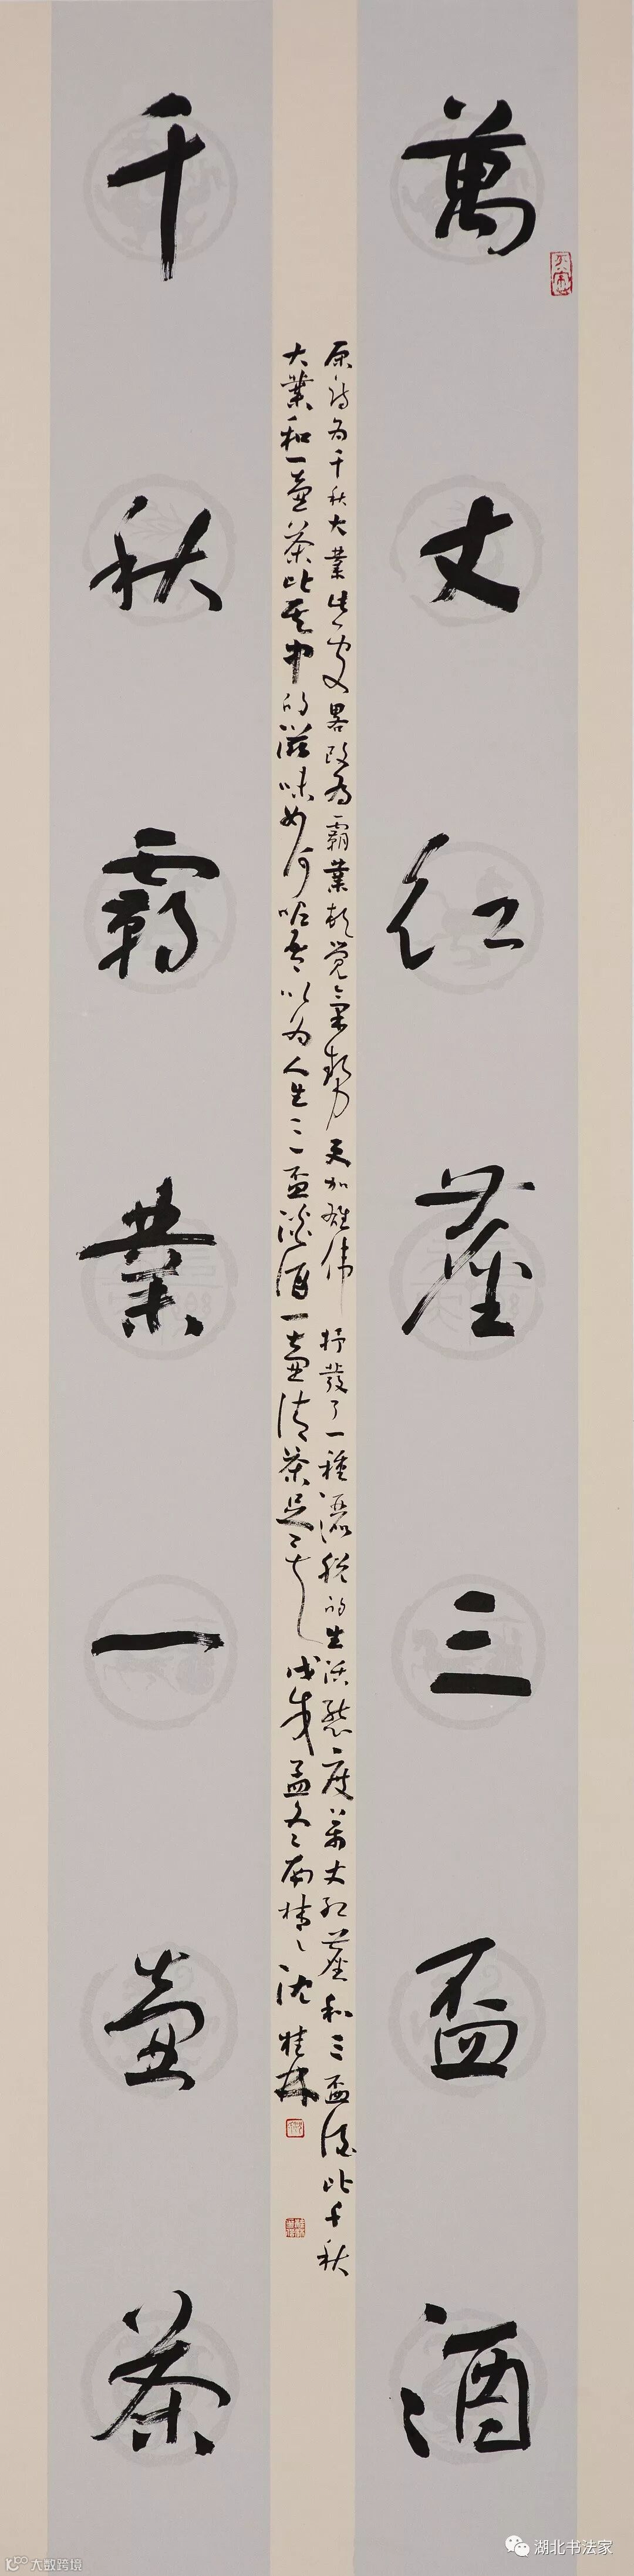 萬丈紅塵三盃酒
千秋霸業一壺茶
原詩為千秋大業 畧改為霸業 覺氣勢更加雄偉 抒發了一種灑脫的生活態度萬丈紅塵和三盃酒比千秋
大業和一壺茶比其中的滋味如何 吾以為人生三盃淡酒一壺清茶足足矣 戊戌孟冬 沈桂林
湖北书法家
大数跨境